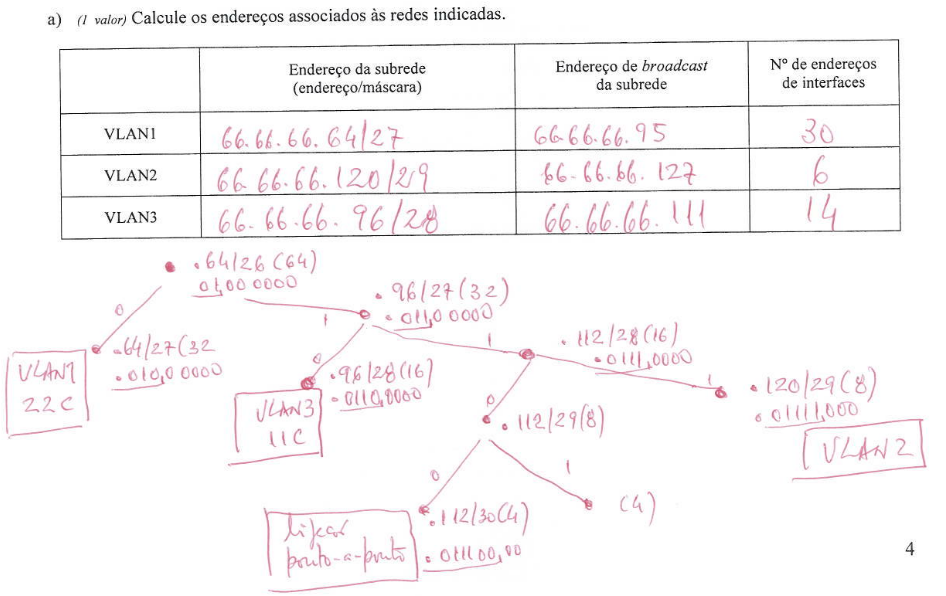 a) (1 valor) Calcule os endereços associados às redes indicadas.
Endereço da subrede
(endereço/máscara)
Endereço de broadcast
da subrede
Nº de endereços
de interfaces
VLAN1 66.66.66.64/27 66.66.66.95 30
VLAN2 66.66.66.120/29 66.66.66.127 6
VLAN3 66.66.66.96/28 66.66.66.111 14
.64/26 (64)
01,00 0000
0
1
.96/27(32)
.011,0 0000
.64/27(32
.010,0 0000
VLAN1
22C
0
1
.112/28(16)
.0111,0000
.96/28(16)
.0110,0000
VLAN3
11C
0
1
.120/29(8)
.01111,000
VLAN2
.112/29(8)
0
1
(4)
.112/30(4)
.011100,00
ponto-a-ponto
4